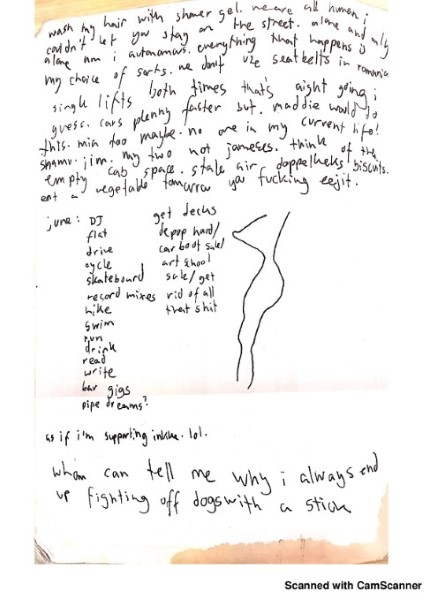 wash my hair with shower gel. we are all human. i
couldn't let you stay on the street. alone and only
alone am i autonomous. everything that happens is
my choice of sorts. we don't use seatbelts in romania
single lifts both times that's aight going i
guess. cars plenty faster but. maddie would do
this. mia too maybe. no one in my current life!
shamu. jim. my two not jameses. think of the
empty cab space. stale air. doppelkeks biscuits.
eat a vegetable tomorrow you fucking eejit.
june: DJ
flat
drive
cycle
skateboard
record mixes
hike
swim
run
drink
read
write
bar gigs
pipe dreams?
get decks
depop hard/
car boot sale/
art school
sale/get
rid of all
that shit
as if i'm supporting. lol.
whom can tell me why i always end
up fighting off dogs with a stick
Scanned with CamScanner